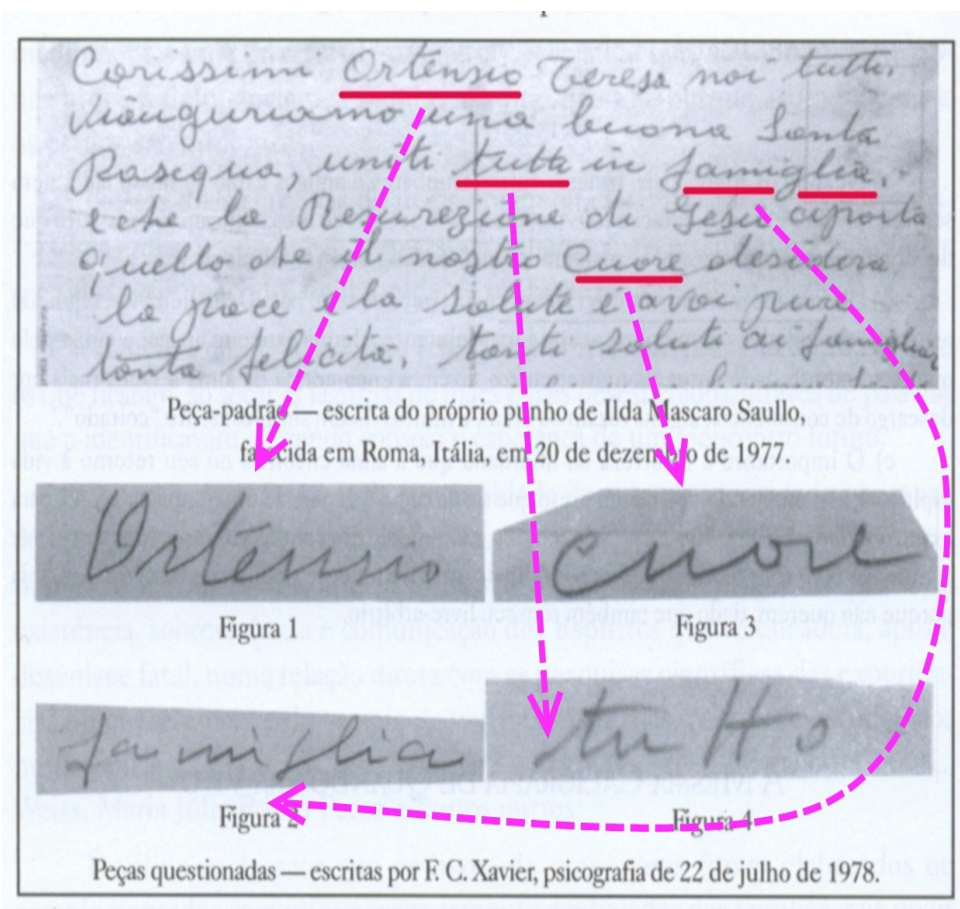 Carissimi Ortensio Teresa noi tutti,
viauguriamo una buona Santa
Pasequa, uniti tutti in famiglia.
che la Resurezione di Gesù ciporta
quello che il nostro Cuore desidera
la pace e la salute e avoi pure
tanta felicità. tanti saluti ai famiglia
Peça-padrão — escrita do próprio punho de Ilda Mascaro Saullo,
falecida em Roma, Itália, em 20 de dezembro de 1977.
Ortensio
cuore
Figura 1
Figura 3
famiglia
tutto
Figura 2
Figura 4
Peças questionadas — escritas por F. C. Xavier, psicografia de 22 de julho de 1978.